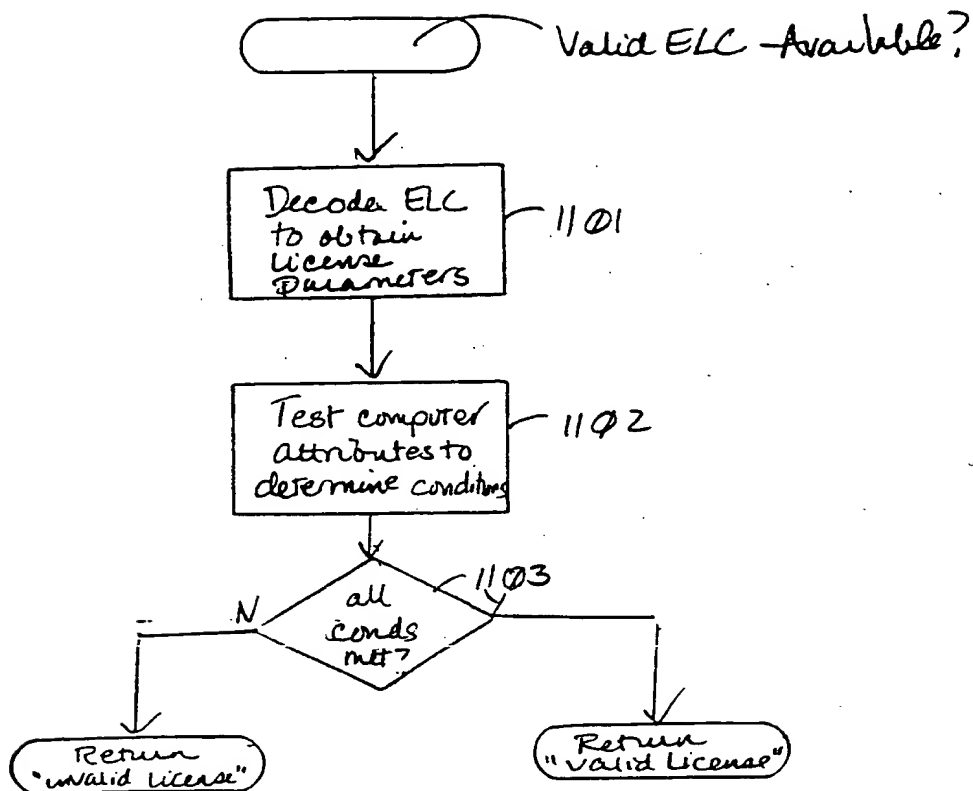 Valid ELC Available?
Decode ELC
to obtain
License
Parameters
1101
Test computer
attributes to
determine conditions
1102
1103
N
all
conds
met?
Return
"invalid License"
Return
"valid License"